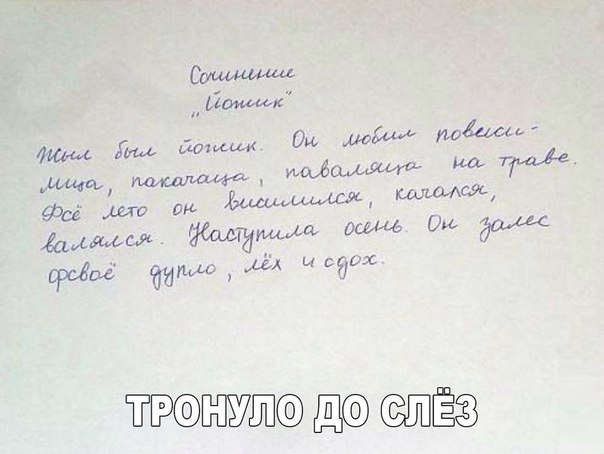 Сочинение
„Йожик"
Жыл был йожик. Он любил повесили-
мица, пакачаца, паваляца на траве.
Фсё лето он висилился, качался,
валялся. Наступила осень. Он залес
фсвоё дупло, лёх и сдох.
ТРОНУЛО ДО СЛЁЗ